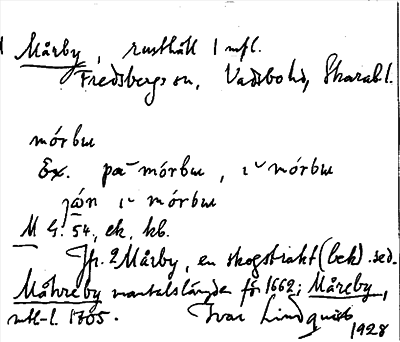 Mårby, rusthåll 1 mfl.
Fredsbergs sn, Vadsbo hd, Skarab. l.
mórbɯ
Ex. pa mórbɯ, ɩ mórbɯ
ɩ mórbɯ
M G: 54, ek, kb.
Jfr. 2 Mårby, en skogstrakt (bek). sed.
Måhreby mantalslängde för 1662; Måreby,
mtl-l. 1705. Ivar Lindquist
1928